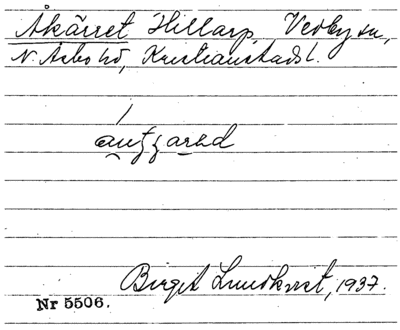 Åkärret Hillarp, Vedby sn,
N. Åsbo hd, Kristianstads l.
Birgit Lundkvist, 1937.
Nr 5506.